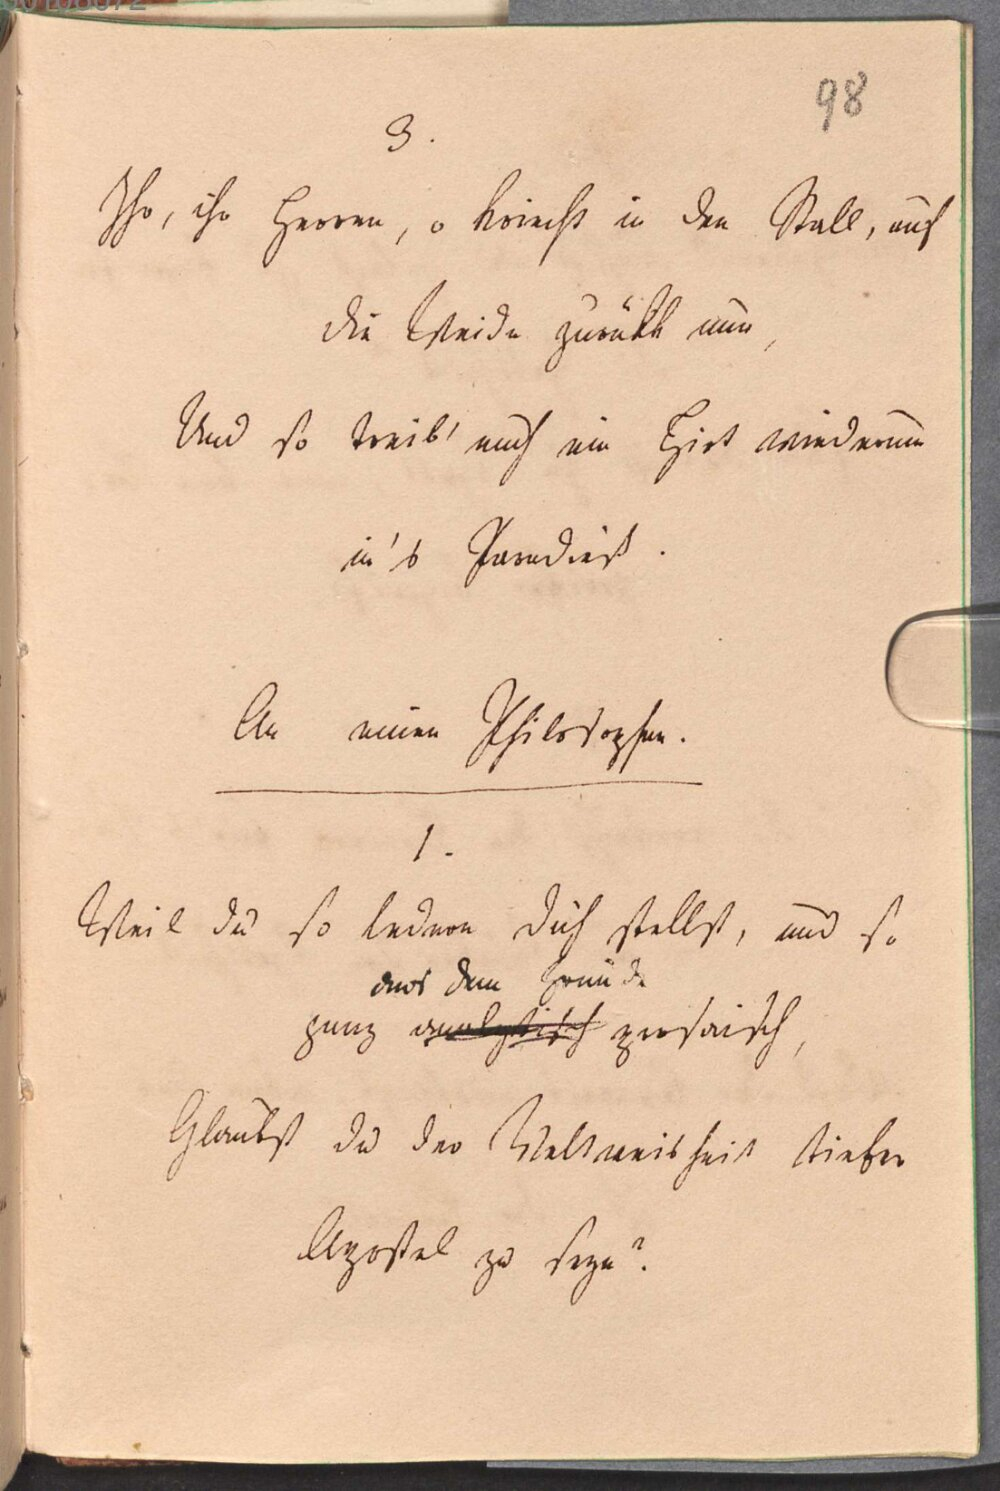 98
3.
Ihr, ihr Herren, o kriecht in den Stall, auf
die Weide zurükk nun,
Und so treib' euch ein Hirt wiederum
in's Paradieß.
An einen Philosophen.
1.
Weil du so ledern dich stellst, und so
aus dem Grunde
ganz analytisch prosaisch,
Glaubst du der Weltweisheit tiefer
Apostel zu seyn?